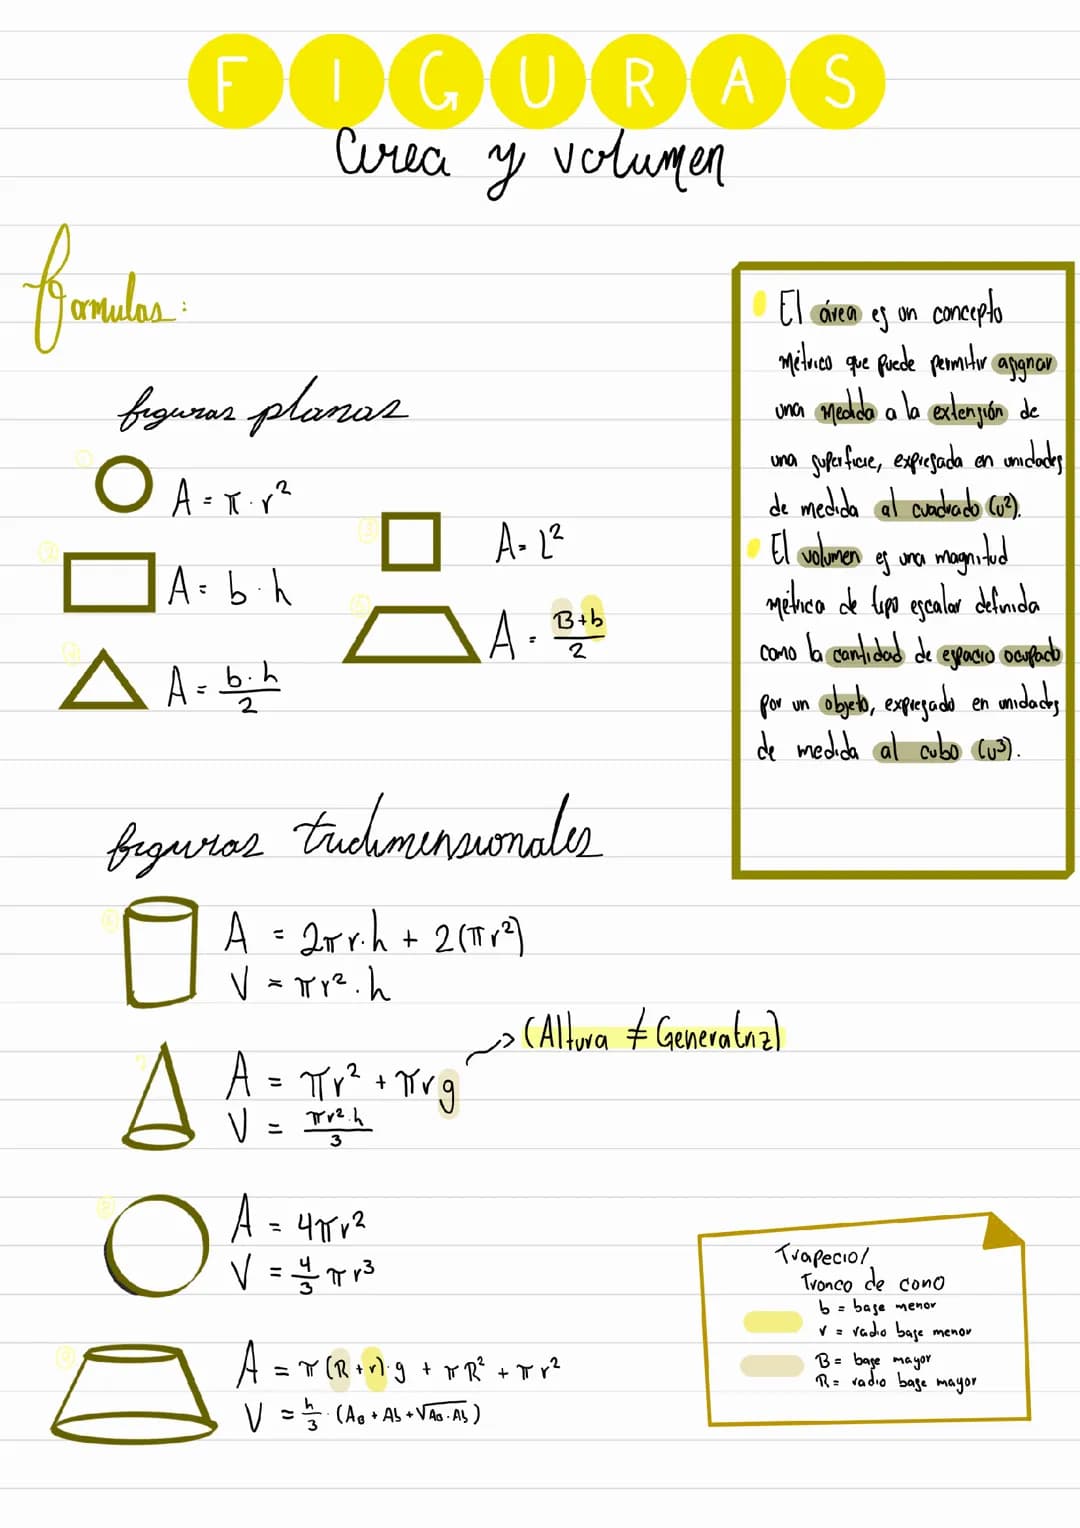 FIGURAS
Área y volumen
formulas:
figuras planas
① A = π · r²
② A = b · h
③ A = L²
④ A = b · h / 2
⑤ A = B + b / 2
El área es un concepto
métrico que puede permitir asignar
una medida a la extensión de
una superficie, expresada en unidades
de medida al cuadrado (u²).
El volumen es una magnitud
métrica de tipo escalar definida
como la cantidad de espacio ocupado
por un objeto, expresado en unidades
de medida al cubo (u³).
figuras tridimensionales
A = 2πr·h + 2(πr²)
V = πr² · h
(Altura ≠ Generatriz)
7 A = πr² + πrg
V = πr²·h / 3
⑧ A = 4πr²
V = 4/3 πr³
⑨ A = π(R + r)·g + πR² + πr²
V = h/3 · (AB + Ab + √AB·Ab)
Trapecio/
Tronco de cono
b = base menor
r = radio base menor
B = base mayor
R = radio base mayor